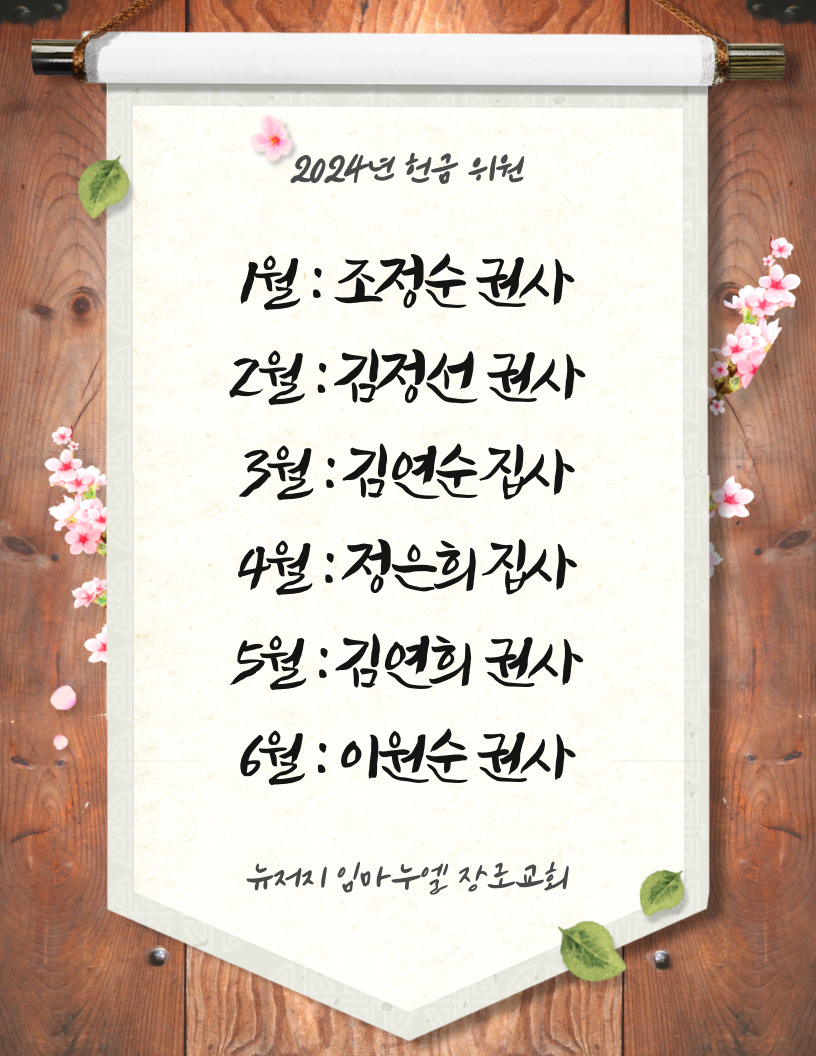 2024년 헌금 위원
1월 : 조정순 권사
2월 : 김정선 권사
3월 : 김연순 집사
4월 : 정은희 집사
5월 : 김연희 권사
6월 : 이원순 권사
뉴저지 임마누엘 장로교회